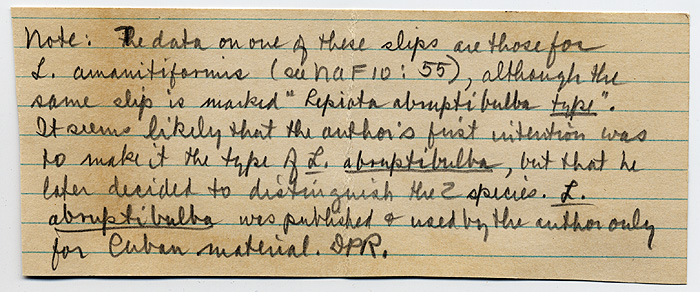 Note: The data on one of these slips are those for
L. amanitiformis (see NAF 10: 55), although the
same slip is marked "Lepiota abruptibulba type".
It seems likely that the author's first intention was
to make it the type of L. abruptibulba, but that he
later decided to distinguish the 2 species. L.
abruptibulba was published & used by the author only
for Cuban material. DPR.